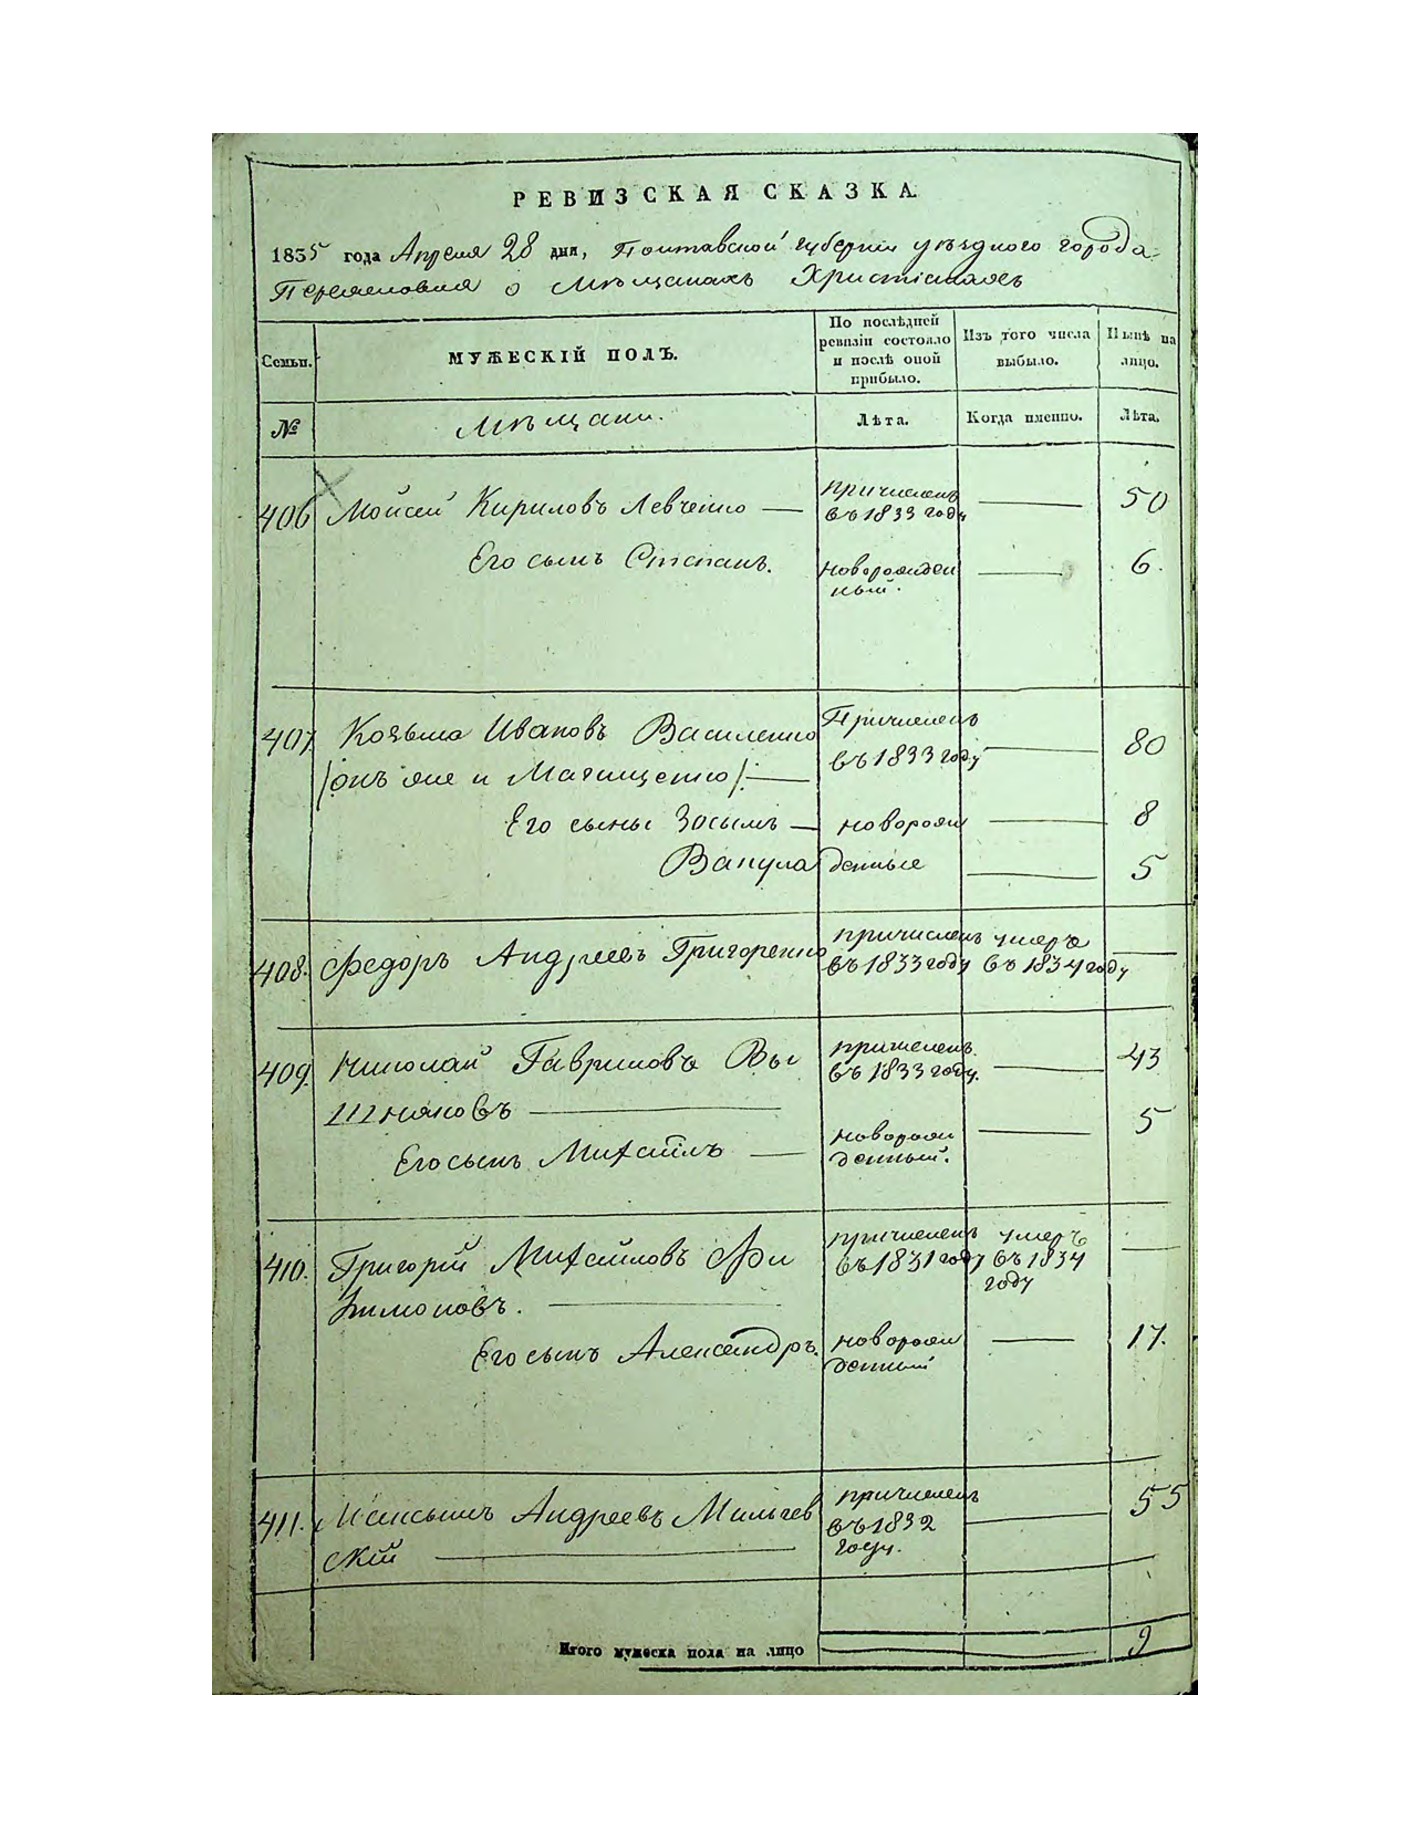 РЕВИЗСКАЯ СКАЗКА.
1835 года Апреля 28 дня, Полтавской губерніи уѣзднаго города
Переяславля о Мѣщанахъ Христіанахъ
Семьи. МУЖЕСКІЙ ПОЛЪ. По послѣдней ревизіи состояло и послѣ оной прибыло. Изъ того числа выбыло. Нынѣ на лицо.
№ Мѣщане. Лѣта. Когда именно. Лѣта.
406 Мойсей Кириловъ Левченко — причисленъ въ 1833 году — 50
Его сынъ Степанъ. новорожденный. — 6.
407 Козьма Ивановъ Василенко Причисленъ въ 1833 году — 80
(онъ же и Магищенко) —
Его сыны Зосымъ — новорож — 8
Вакула денные — 5
408. Федоръ Андреевъ Григоренко причисленъ въ 1833 году умеръ въ 1834 году —
409. Николай Гавриловъ Вы причисленъ въ 1833 году. — 43
шняковъ —
Его сынъ Михаилъ — новорожденный. — 5
410. Григорій Михайловъ Фи причисленъ въ 1831 году умеръ въ 1834 году —
лимоновъ. —
Его сынъ Александръ. новорожденный — 17.
411. Максымъ Андреевъ Мильчев причисленъ въ 1832 году. — 55
скій —
Итого мужеска пола на лицо 9